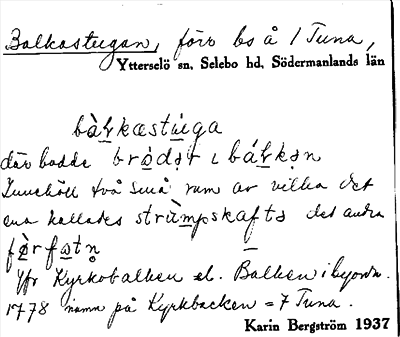 Balkastugan, förr bs å 1 Tuna,
Ytterselö sn, Selebo hd, Södermanlands län
bàƚkastu̇ga
där bodde brò̱dạr ι báƚkạn
Innehöll två små rum av vilka det
ena kallades strùmpskafts det andra
fœ̀rfatn̥
Jfr Kyrkobalken el. Balken i
1778 namn på Kyrkbacken = 7 Tuna.
Karin Bergström 1937